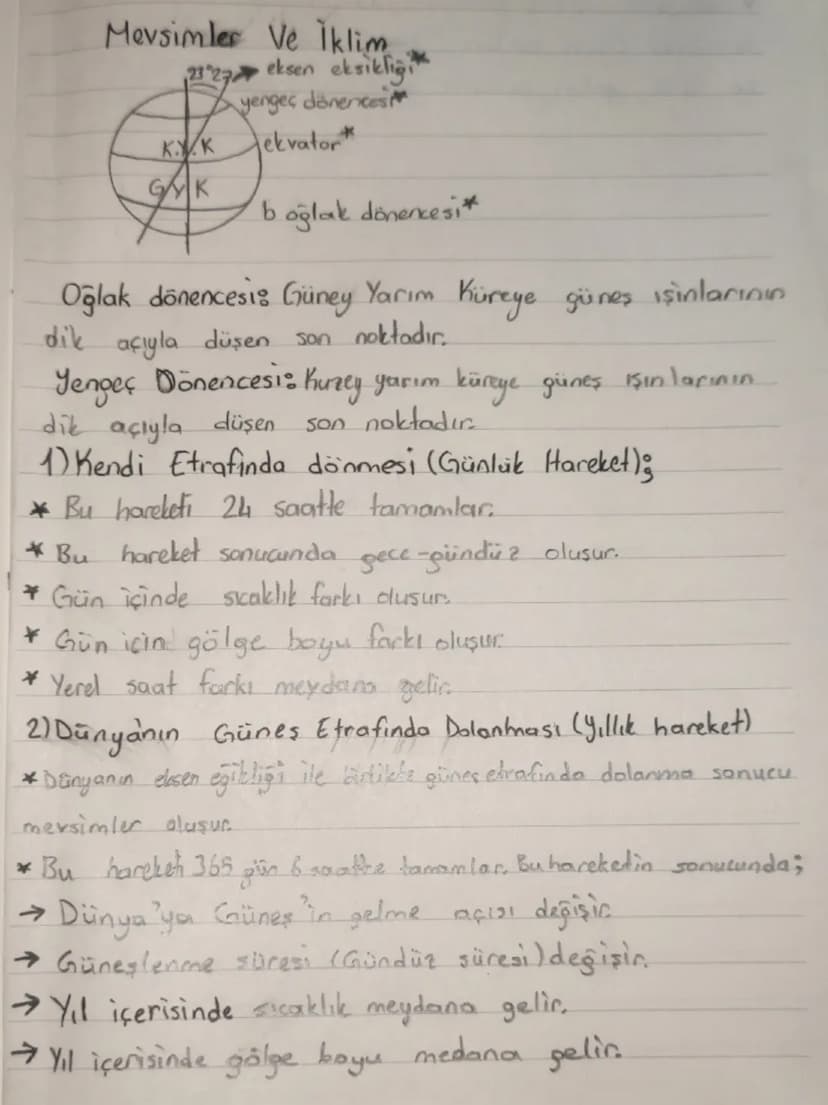 Mevsimler Ve İklim
23°27 → eksen eksikliği*
yengeç dönencesi*
K.Y.K
ekvator*
GYK
b oğlak dönencesi*
Oğlak dönencesi: Güney Yarım Küreye güneş ışınlarının
dik açıyla düşen son noktadır.
Yengeç Dönencesi: Kuzey yarım küreye güneş ışınlarının
dik açıyla düşen son noktadır.
1) Kendi Etrafında dönmesi (Günlük Hareket);
* Bu hareketi 24 saatte tamamlar.
* Bu hareket sonucunda gece-gündüz oluşur.
* Gün içinde sıcaklık farkı oluşur.
* Gün için gölge boyu farkı oluşur.
* Yerel saat farkı meydana gelir.
2) Dünya'nın Güneş Etrafında Dolanması (Yıllık hareket)
* Dünyanın eksen eğikliği ile birlikte güneş etrafında dolanma sonucu
mevsimler oluşur.
* Bu hareketi 365 gün 6 saatte tamamlar. Bu hareketin sonucunda;
→ Dünya'ya Güneş'in gelme açısı değişir.
→ Güneşlenme süresi (Gündüz süresi) değişir.
→ Yıl içerisinde sıcaklık meydana gelir.
→ Yıl içerisinde gölge boyu medana gelir.